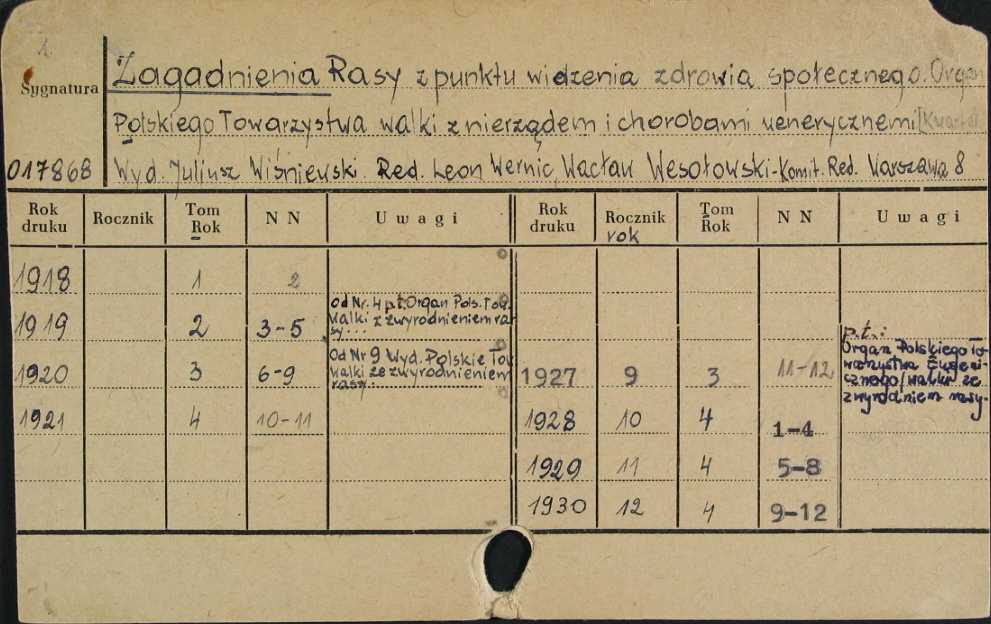 1.
Sygnatura
Zagadnienia Rasy z punktu widzenia zdrowia społecznego. Organ
Polskiego Towarzystwa walki z nierządem i chorobami wenerycznemi [Kwartal.
017868 Wyd. Juliusz Wiśniewski. Red. Leon Wernic, Wacław Wesołowski - Komit. Red. Warszawa 8
Rok druku Rocznik Tom Rok NN Uwagi Rok druku Rocznik rok Tom Rok NN Uwagi
1918 1 2
1919 2 3-5 od Nr. 4 p.t. Organ Pols. Tow.
walki z zwyrodnieniem ra-
sy...
1920 3 6-9 Od Nr 9 Wyd. Polskie Tow
walki ze zwyrodnieniem
rasy.
1921 4 10-11
1927 9 3 11-12 p.t.:
Organ Polskiego To-
warzystwa Eugeni-
cznego/walki ze
zwyrodniem rasy.
1928 10 4 1-4
1929 11 4 5-8
1930 12 4 9-12